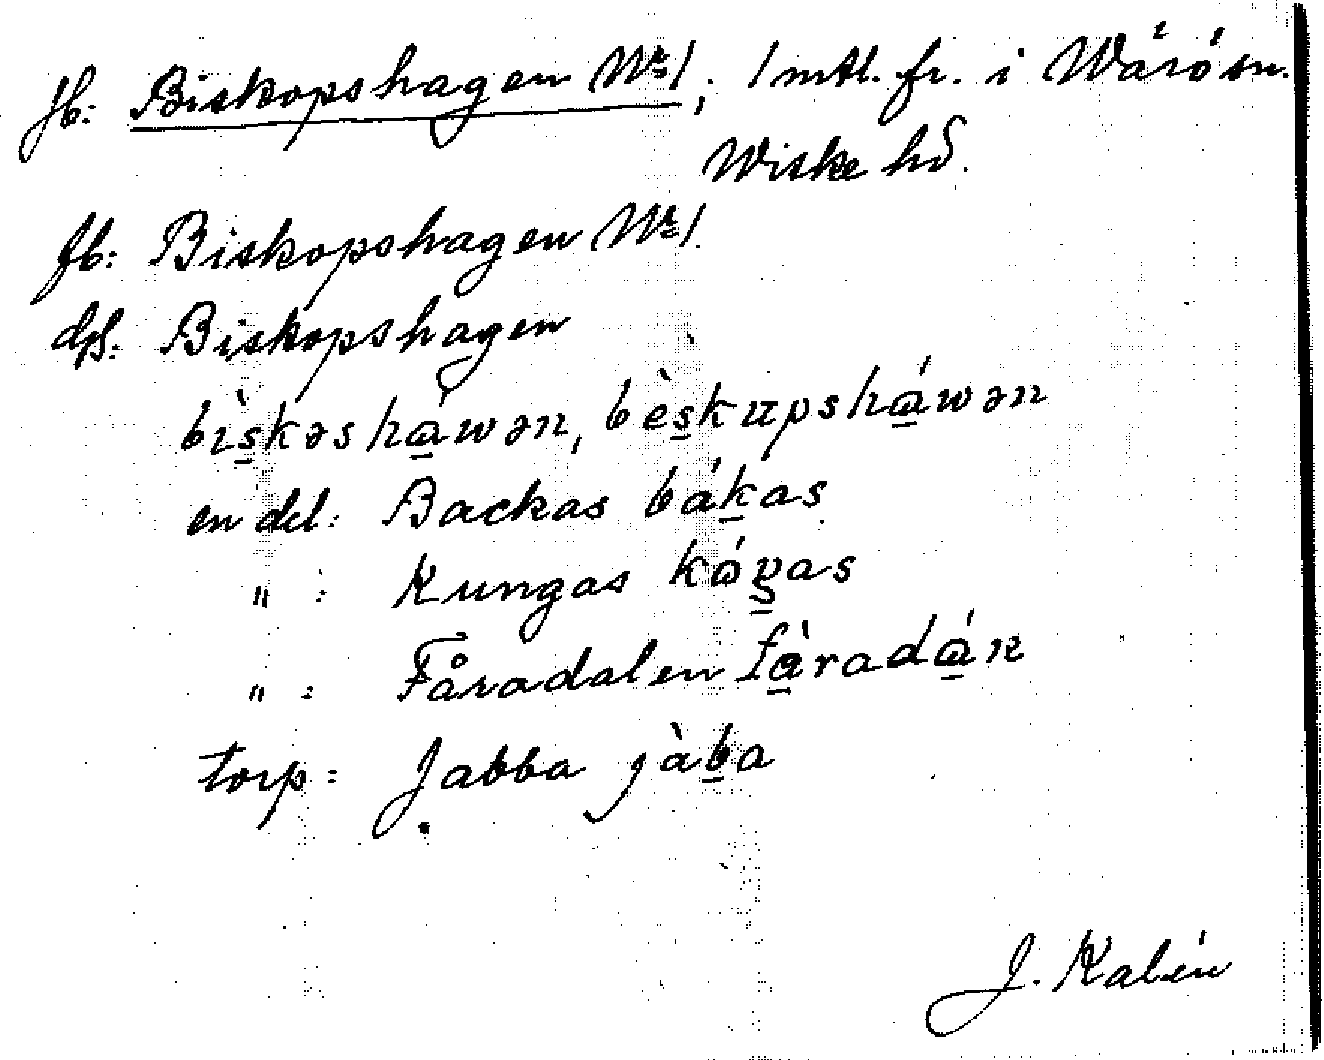 jb: Biskopshagen Nr 1, 1 mtl. fr. i Wärö sn.
Wiske hd.
fb: Biskopshagen Nr 1.
dpf. Biskopshagen
bìs̱kəshá̱wən, bès̱kupshá̱wən
en del: Backas báḵas
" : Kungas
" : Fåradalen fà̱radá̱n
torp: Jabba jàḇa
J. Kalén